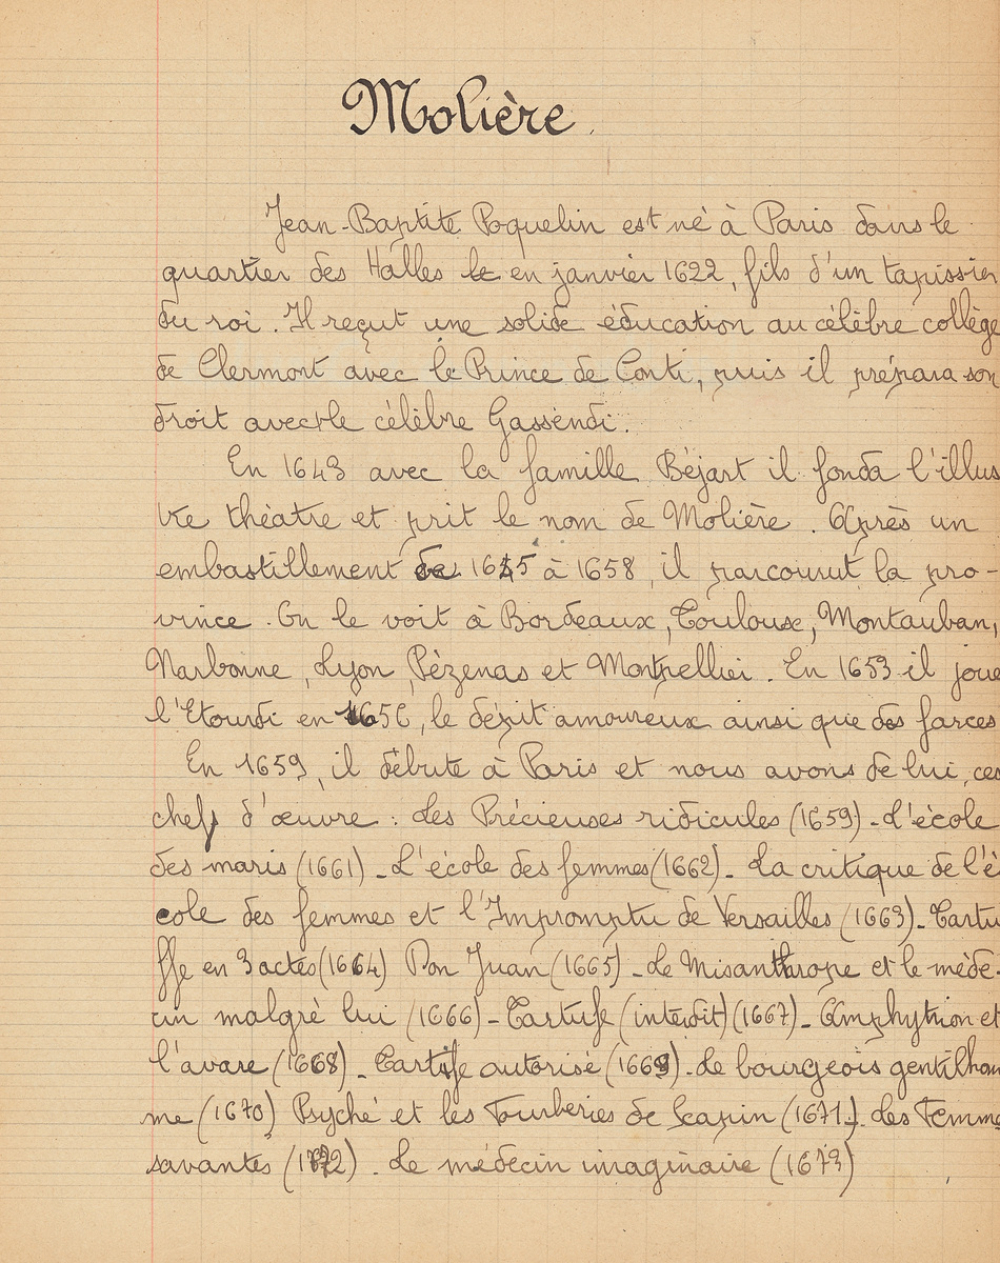 Molière.
Jean-Baptite Poquelin est né à Paris dans le
quartier des Halles le en janvier 1622, fils d'un tapissier
du roi. Il reçut une solide éducation au célèbre collège
de Clermont avec le Prince de Conti, puis il prépara son
droit avec le célèbre Gassendi.
En 1643 avec la famille Béjart il fonda l'illus
tre théatre et prit le nom de Molière. Après un
embastillement de 1645 à 1658, il parcourut la pro-
vince. On le voit à Bordeaux, Toulouse, Montauban,
Narbonne, Lyon, Pézenas et Montpellier. En 1653 il joue
l'Etourdi en 1656, le dépit amoureux ainsi que des farces
En 1659, il débute à Paris et nous avons de lui, ces
chefs d'œuvre : Les Précieuses ridicules (1659) - L'école
des maris (1661) - L'école des femmes (1662) - La critique de l'é
cole des femmes et l'Impromptu de Versailles (1663) - Tartu
ffe en 3 actes (1664) Don Juan (1665) - Le Misanthrope et le méde-
cin malgré lui (1666) - Tartufe (interdit) (1667) - Amphytrion et
l'avare (1668) - Tartufe autorisé (1669) - Le bourgeois gentilhom
me (1670) Psyché et les Fourberies de Scapin (1671). Les Femmes
savantes (1672). Le médecin imaginaire (1673)